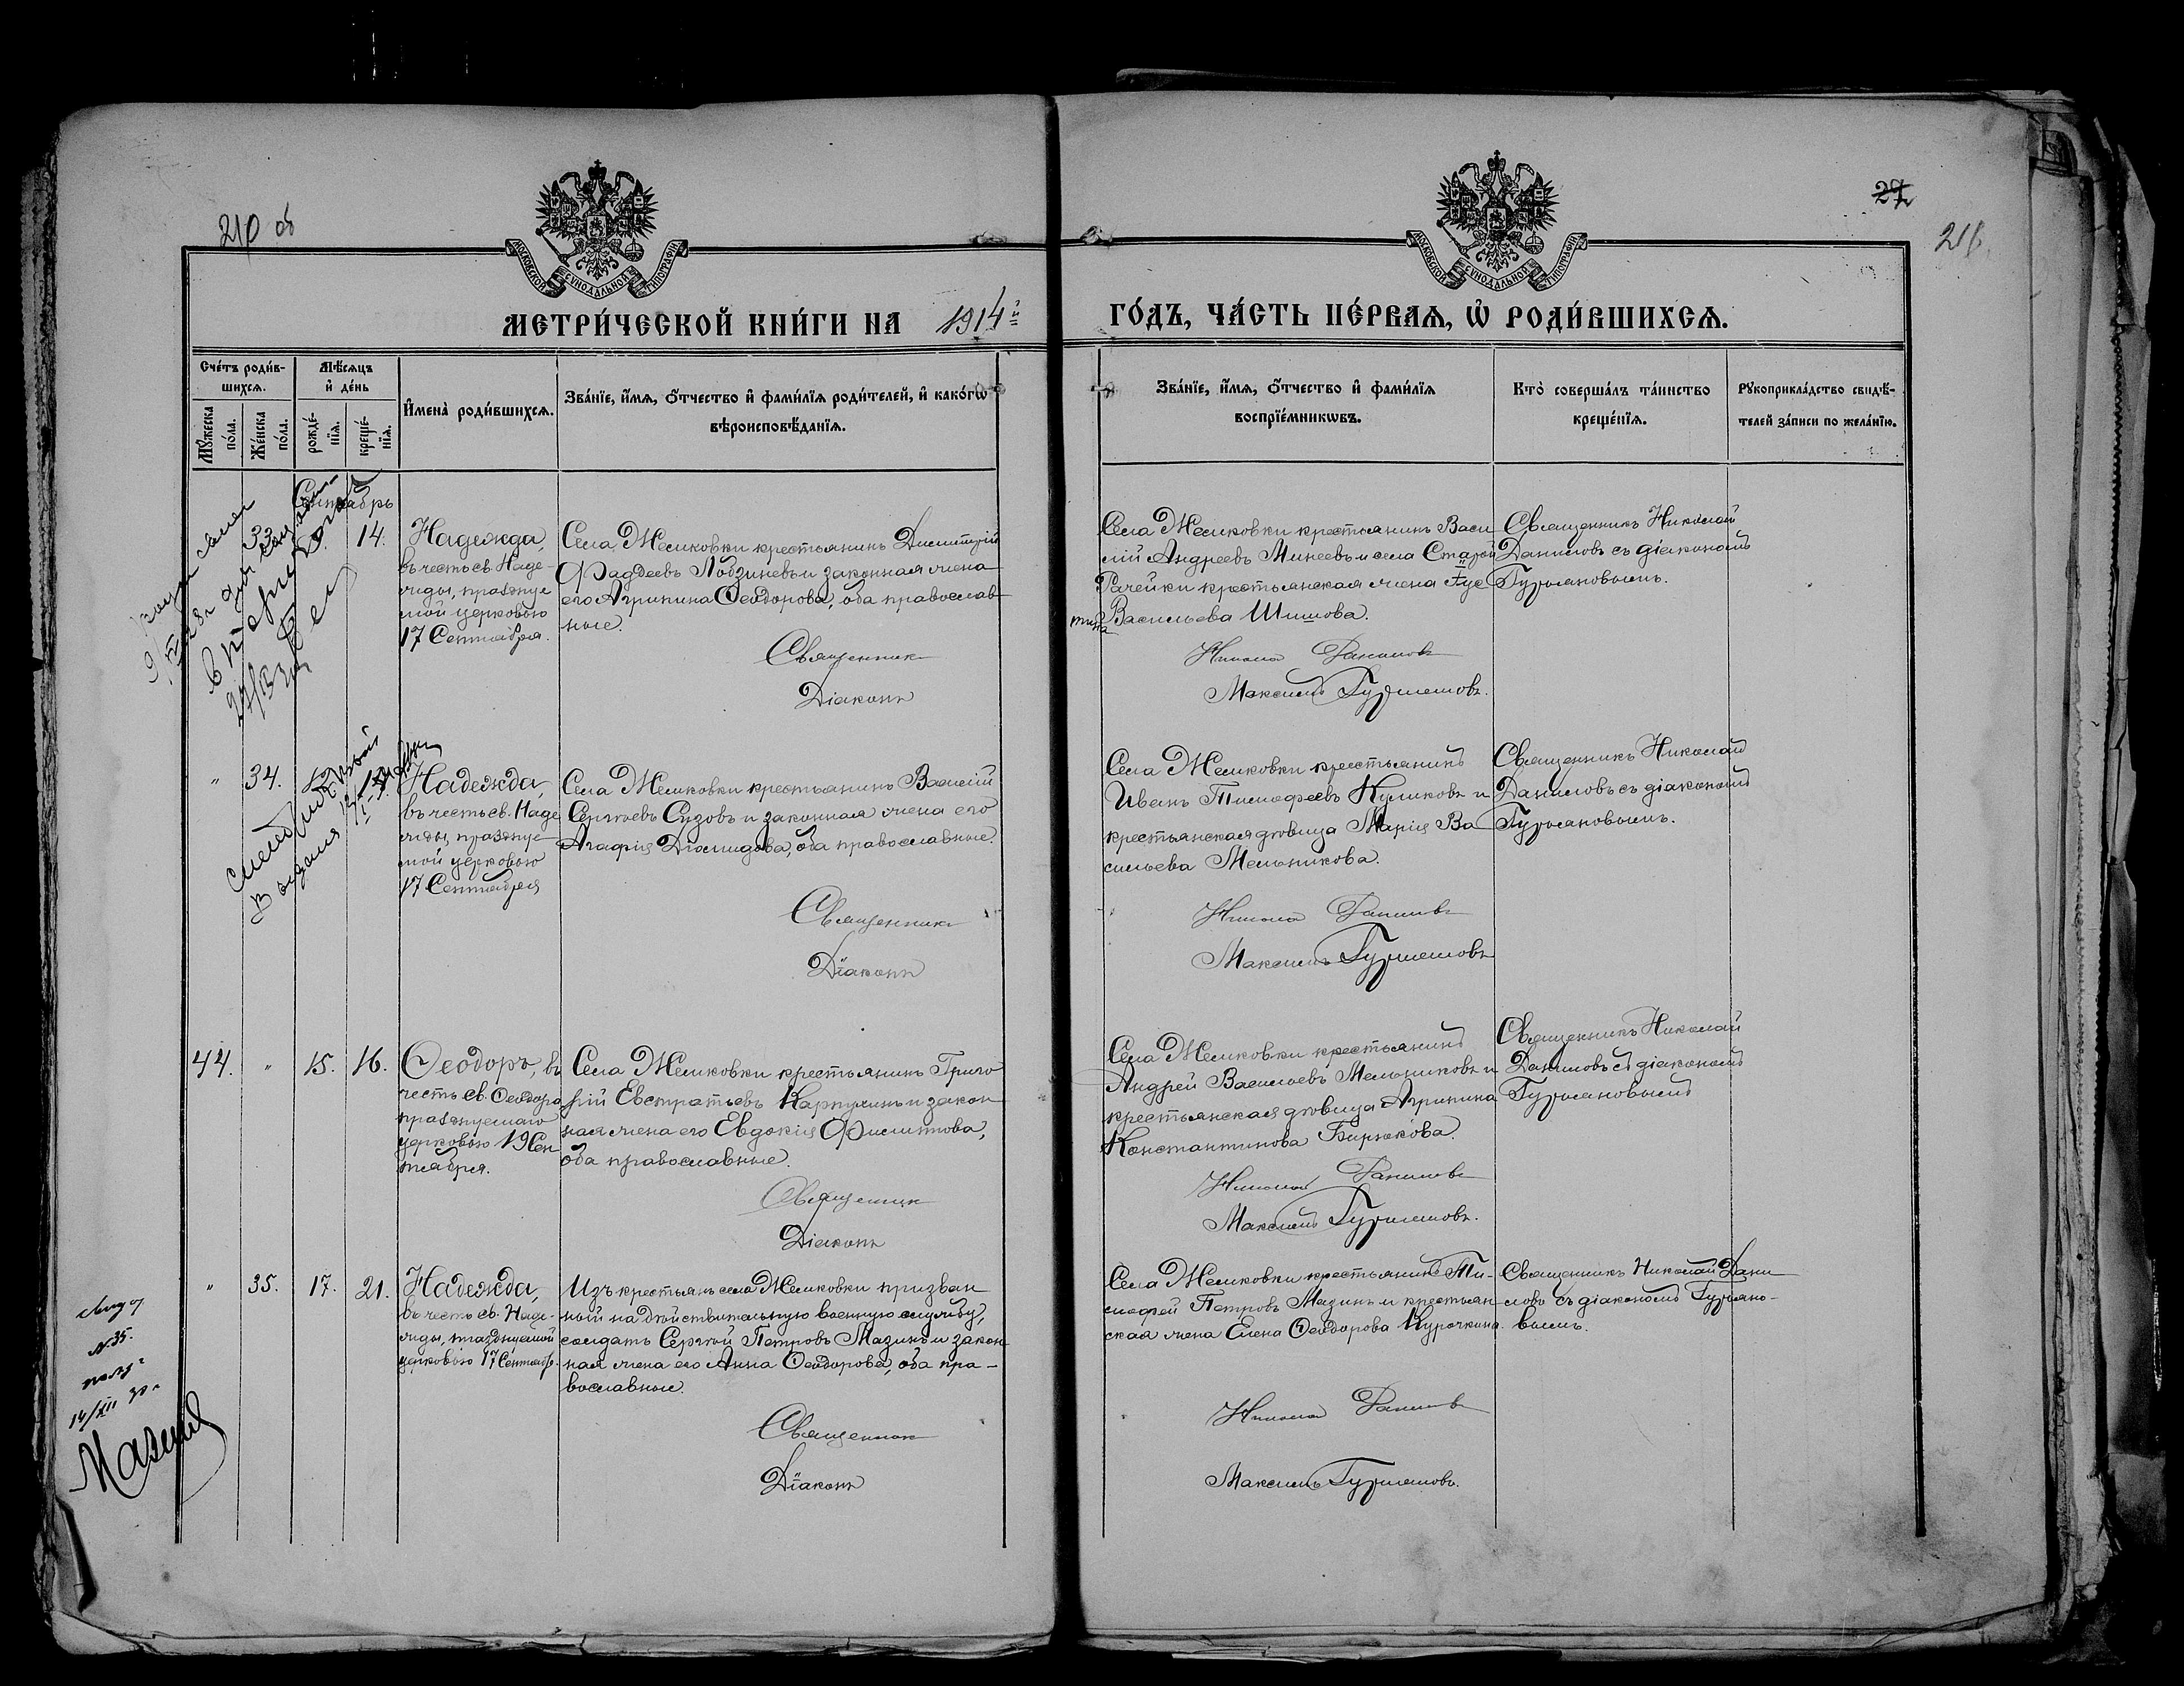 210 об
27
211
МОСКОВСКОЙ СѴНОДАЛЬНОЙ ТИПОГРАФІИ
МОСКОВСКОЙ СѴНОДАЛЬНОЙ ТИПОГРАФІИ
МЕТРИ́ЧЕСКОЙ КНИ́ГИ НА 1914й ГО́ДЪ, ЧА́СТЬ ПЕ́РВАѦ, Ѡ҆ РОДИ́ВШИХСѦ.
Сче́тъ роди́в-
шихсѧ.
Мѣ́сѧцъ
и҆ де́нь
Мꙋ́жеска
по́ла.
Же́нска
по́ла.
рожде́-
нїѧ.
креще́-
нїѧ.
И҆мена̀ роди́вшихсѧ.
Зва́нїе, и҆́мѧ, ѻ҆́тчество и҆ фами́лїѧ роди́телей, и҆ како́гѡ
вѣроисповѣ́данїѧ.
Зва́нїе, и҆́мѧ, ѻ҆́тчество и҆ фами́лїѧ
воспрїе́мникѡвъ.
Кто̀ соверша́лъ та́инство
креще́нїѧ.
Рꙋкоприкла́дство свидѣ́-
телей за́писи по жела́нїю.
Сентябрь
33
14.
Надежда,
въ честь св. Наде-
жды, праздуе
мой церковью
17 Сентября.
Села Жемковки крестьянинъ Димитрій
Фаддеевъ Лобзиневъ и законная жена
его Агрипина Ѳеодорова, оба православ-
ные.
Священник
Діаконъ
Села Жемковки крестьянинъ Васи
лій Андреевъ Минеевъ и села Старой
Рачейки крестьянская жена Іус
тина Васильева Шишова.
Николай Данилов
Максимъ Гурьяновъ.
Священникъ Николай
Даниловъ съ діакономъ
Гурьяновымъ.
" 34.
Надежда,
въ честь св. Наде
жды, праздуе-
мой церковью
17 Сентября
Села Жемковки крестьянинъ Василій
Сергѣевъ Сызовъ и законная жена его
Агафія Діомидова, оба православные.
Священник
Діаконъ
Села Жемковки крестьянинъ
Иванъ Тимофеевъ Куликовъ и
крестьянская дѣвица Марія Ва
сильева Мельникова.
Николай Данилов
Максимъ Гурьяновъ
Священникъ Николай
Даниловъ съ діакономъ
Гурьяновымъ.
44. " 15. 16.
Ѳеодоръ, въ
честь св. Ѳеодора
празднуемаго
церковью 19 Сен
тября.
Села Жемковки крестьянинъ Григо
рій Евстратьевъ Карпухинъ и закон
ная жена его Евдокія Филиппова,
оба православные.
Священник
Діаконъ
Села Жемковки крестьянинъ
Андрей Васильевъ Мельниковъ и
крестьянская дѣвица Агрипина
Константинова Бирюкова.
Николай Данилов
Максимъ Гурьяновъ.
Священникъ Николай
Даниловъ съ діакономъ
Гурьяновымъ
" 35. 17. 21.
Надежда,
въ честь св. Наде-
жды, празднуемой
церковью 17 Сентябр.
Изъ крестьянъ села Жемковки призван
ный на дѣйствительную военную службу,
солдатъ Сергѣй Петровъ Мазинъ и закон
ная жена его Анна Ѳеодорова, оба пра-
вославные.
Священник
Діаконъ
Села Жемковки крестьянинъ Ти-
мофей Петровъ Мазинъ и крестьян-
ская жена Елена Ѳеодорова Курочкина.
Николай Данилов
Максимъ Гурьяновъ.
Священникъ Николай Дани
ловъ съ діакономъ Гурьяно-
вымъ.
N. 35.
14/XII 30 г
Мазин